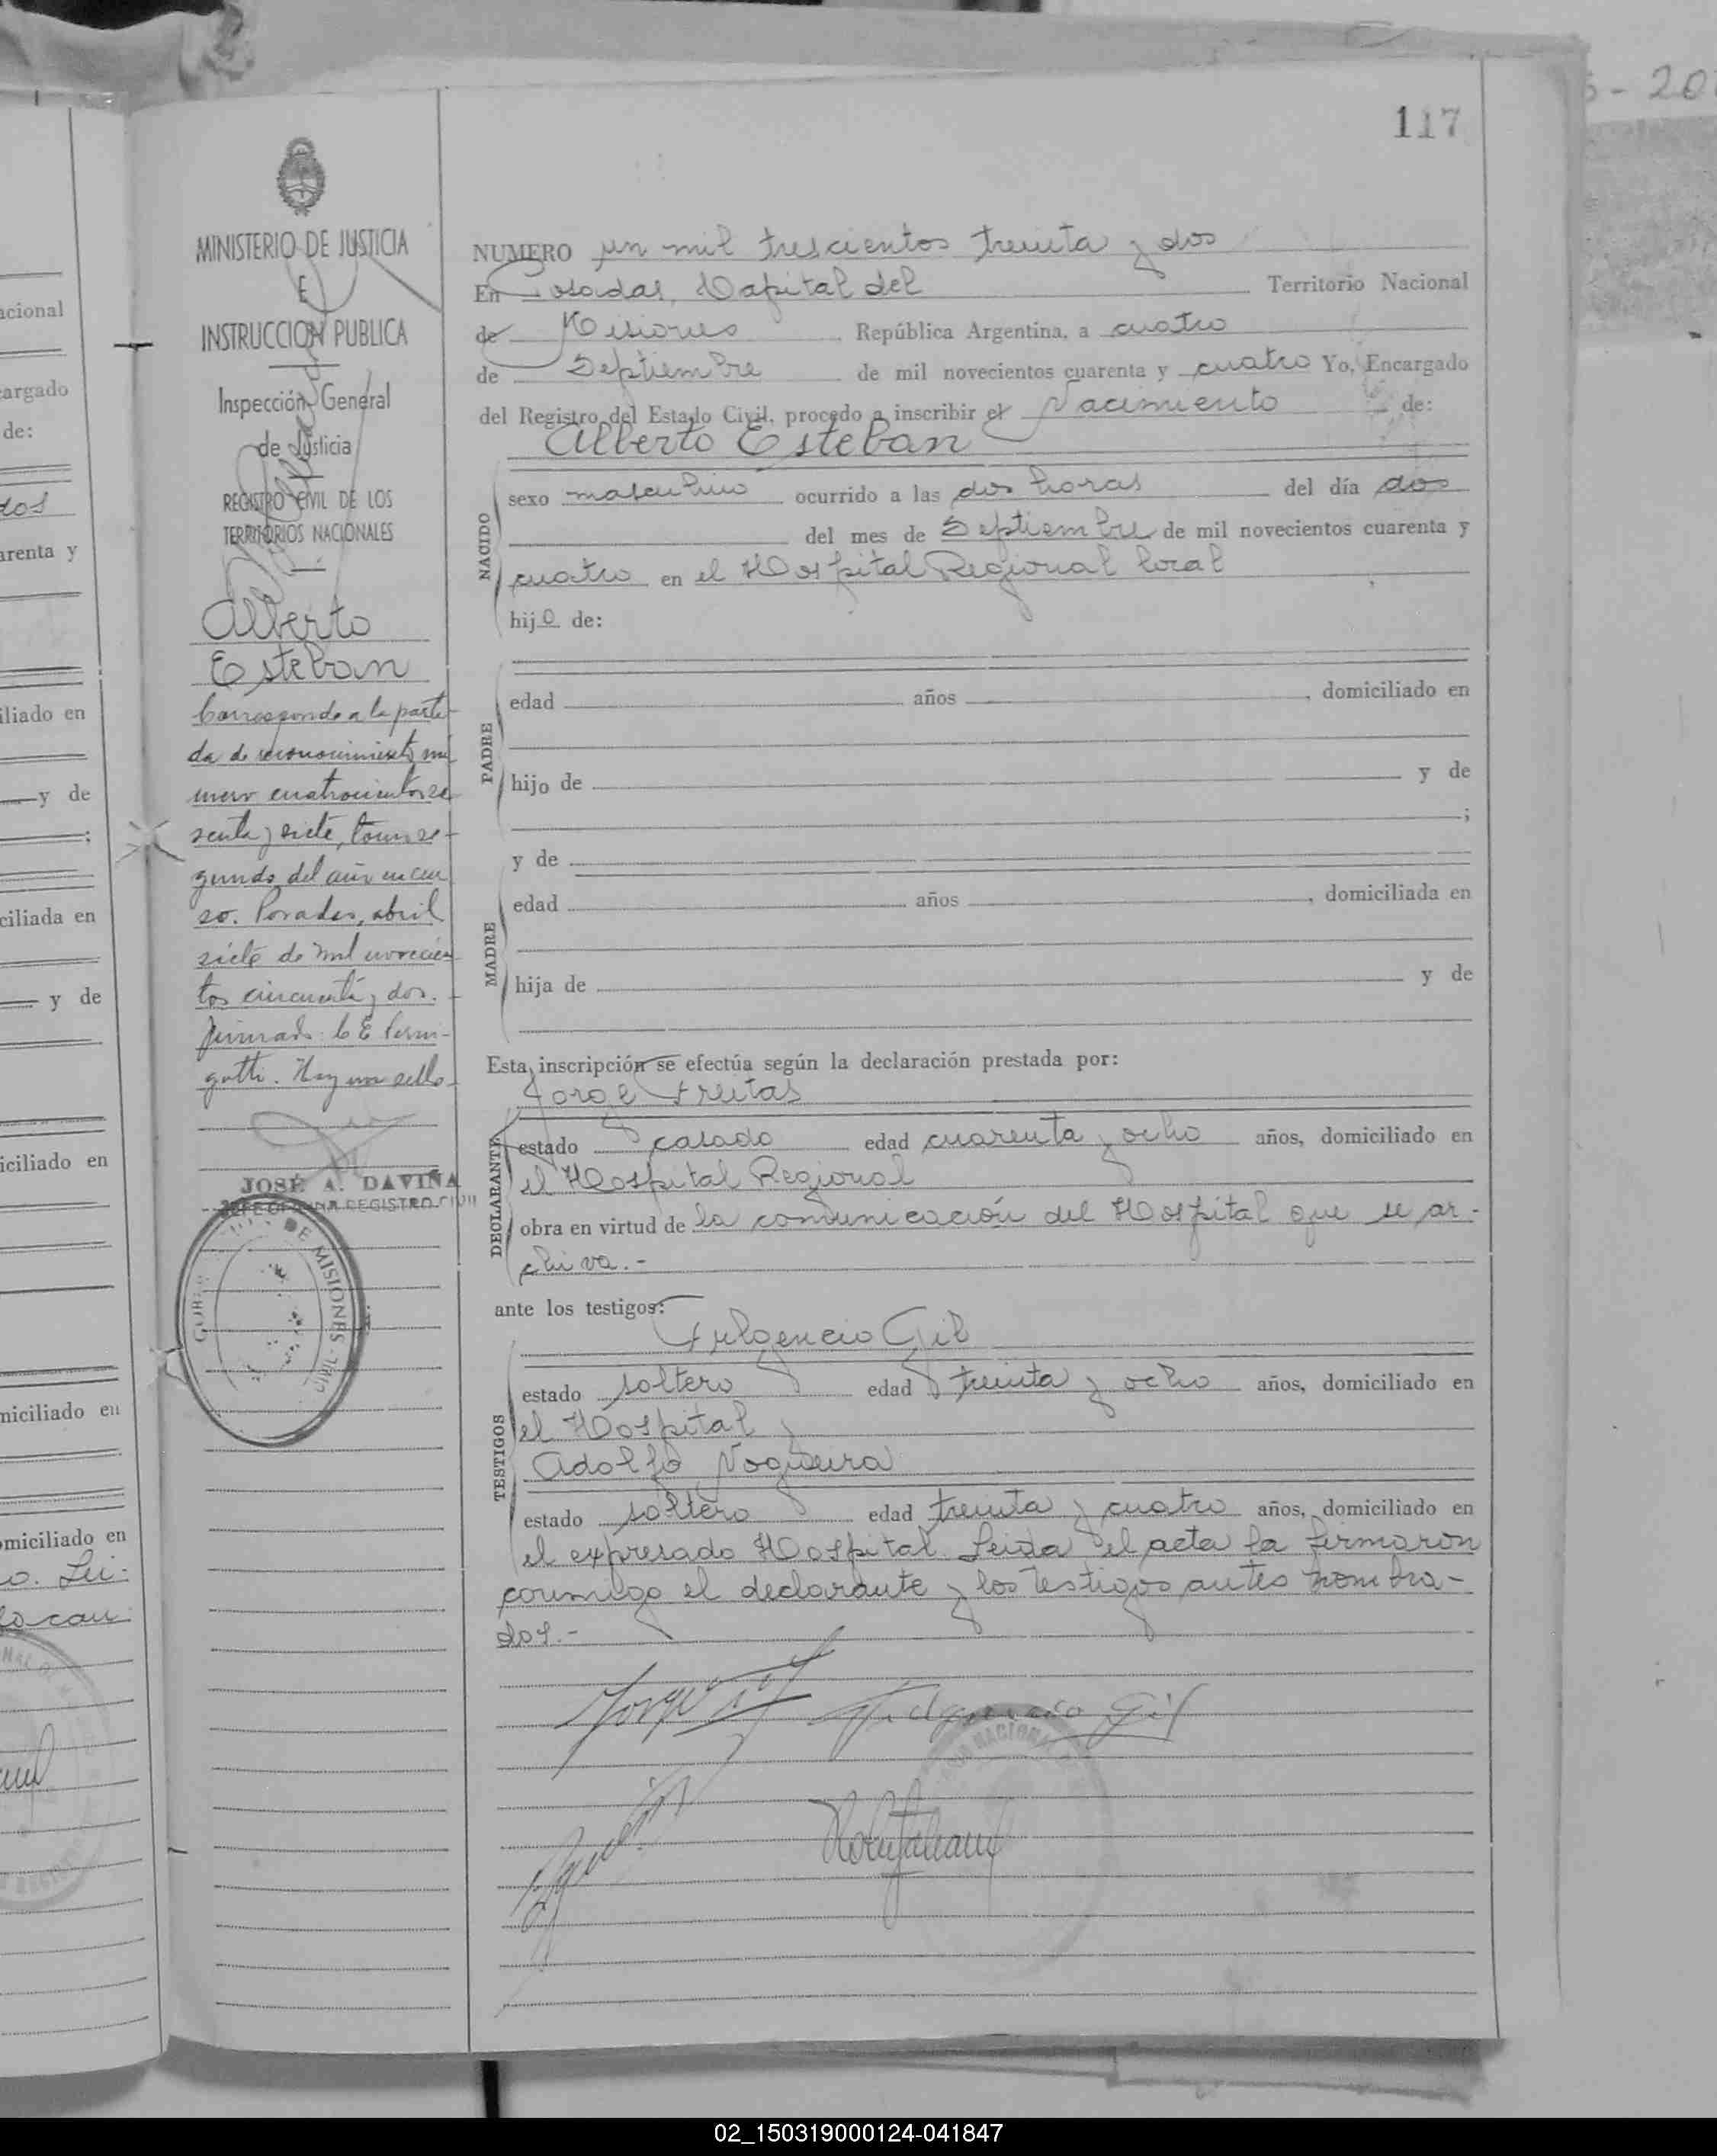 6-20
117
acional
cargado
de:
dos
arenta y
iliado en
y de
;
ciliada en
y de
iciliado en
miciliado en
omiciliado en
o. Lei-
MINISTERIO DE JUSTICIA
E
INSTRUCCION PUBLICA
Inspección General
de Justicia
REGISTRO CIVIL DE LOS
TERRITORIOS NACIONALES
Alberto
Esteban
Corresponde a la parti-
da de reconocimiento nú
mero cuatrocientos se
senta y siete, tomo se-
gundo del año en cur
so. Posadas, abril
siete de mil novecien
tos cincuenta y dos.
firmado: C E
Hay un sello
JOSÉ A. DAVIÑA
JEFE OFICINA REGISTRO CIVIL
DE MISIONES
NUMERO un mil trescientos treinta y dos
En Posadas, Capital del Territorio Nacional
de Misiones República Argentina, a cuatro
de Septiembre de mil novecientos cuarenta y cuatro Yo, Encargado
del Registro del Estado Civil, procedo a inscribir el Nacimiento de:
Alberto Esteban
NACIDO
sexo masculino ocurrido a las dos horas del día dos
del mes de Septiembre de mil novecientos cuarenta y
cuatro en el Hospital Regional local
hijo de:
PADRE
edad años , domiciliado en
hijo de y de
;
y de
MADRE
edad años , domiciliada en
hija de y de
Esta inscripción se efectúa según la declaración prestada por:
Jorge Freitas
DECLARANTE
estado casado edad cuarenta y ocho años, domiciliado en
el Hospital Regional
obra en virtud de la comunicación del Hospital que se ar-
chiva.-
ante los testigos:
Fulgencio Gil
TESTIGOS
estado soltero edad treinta y ocho años, domiciliado en
el Hospital y
Adolfo Nogueira
estado soltero edad treinta y cuatro años, domiciliado en
el expresado Hospital. Leida el acta la firmaron
conmigo el declarante y los testigos antes nombra-
dos.-
Fulgencio Gil
NACIONAL
02_150319000124-041847